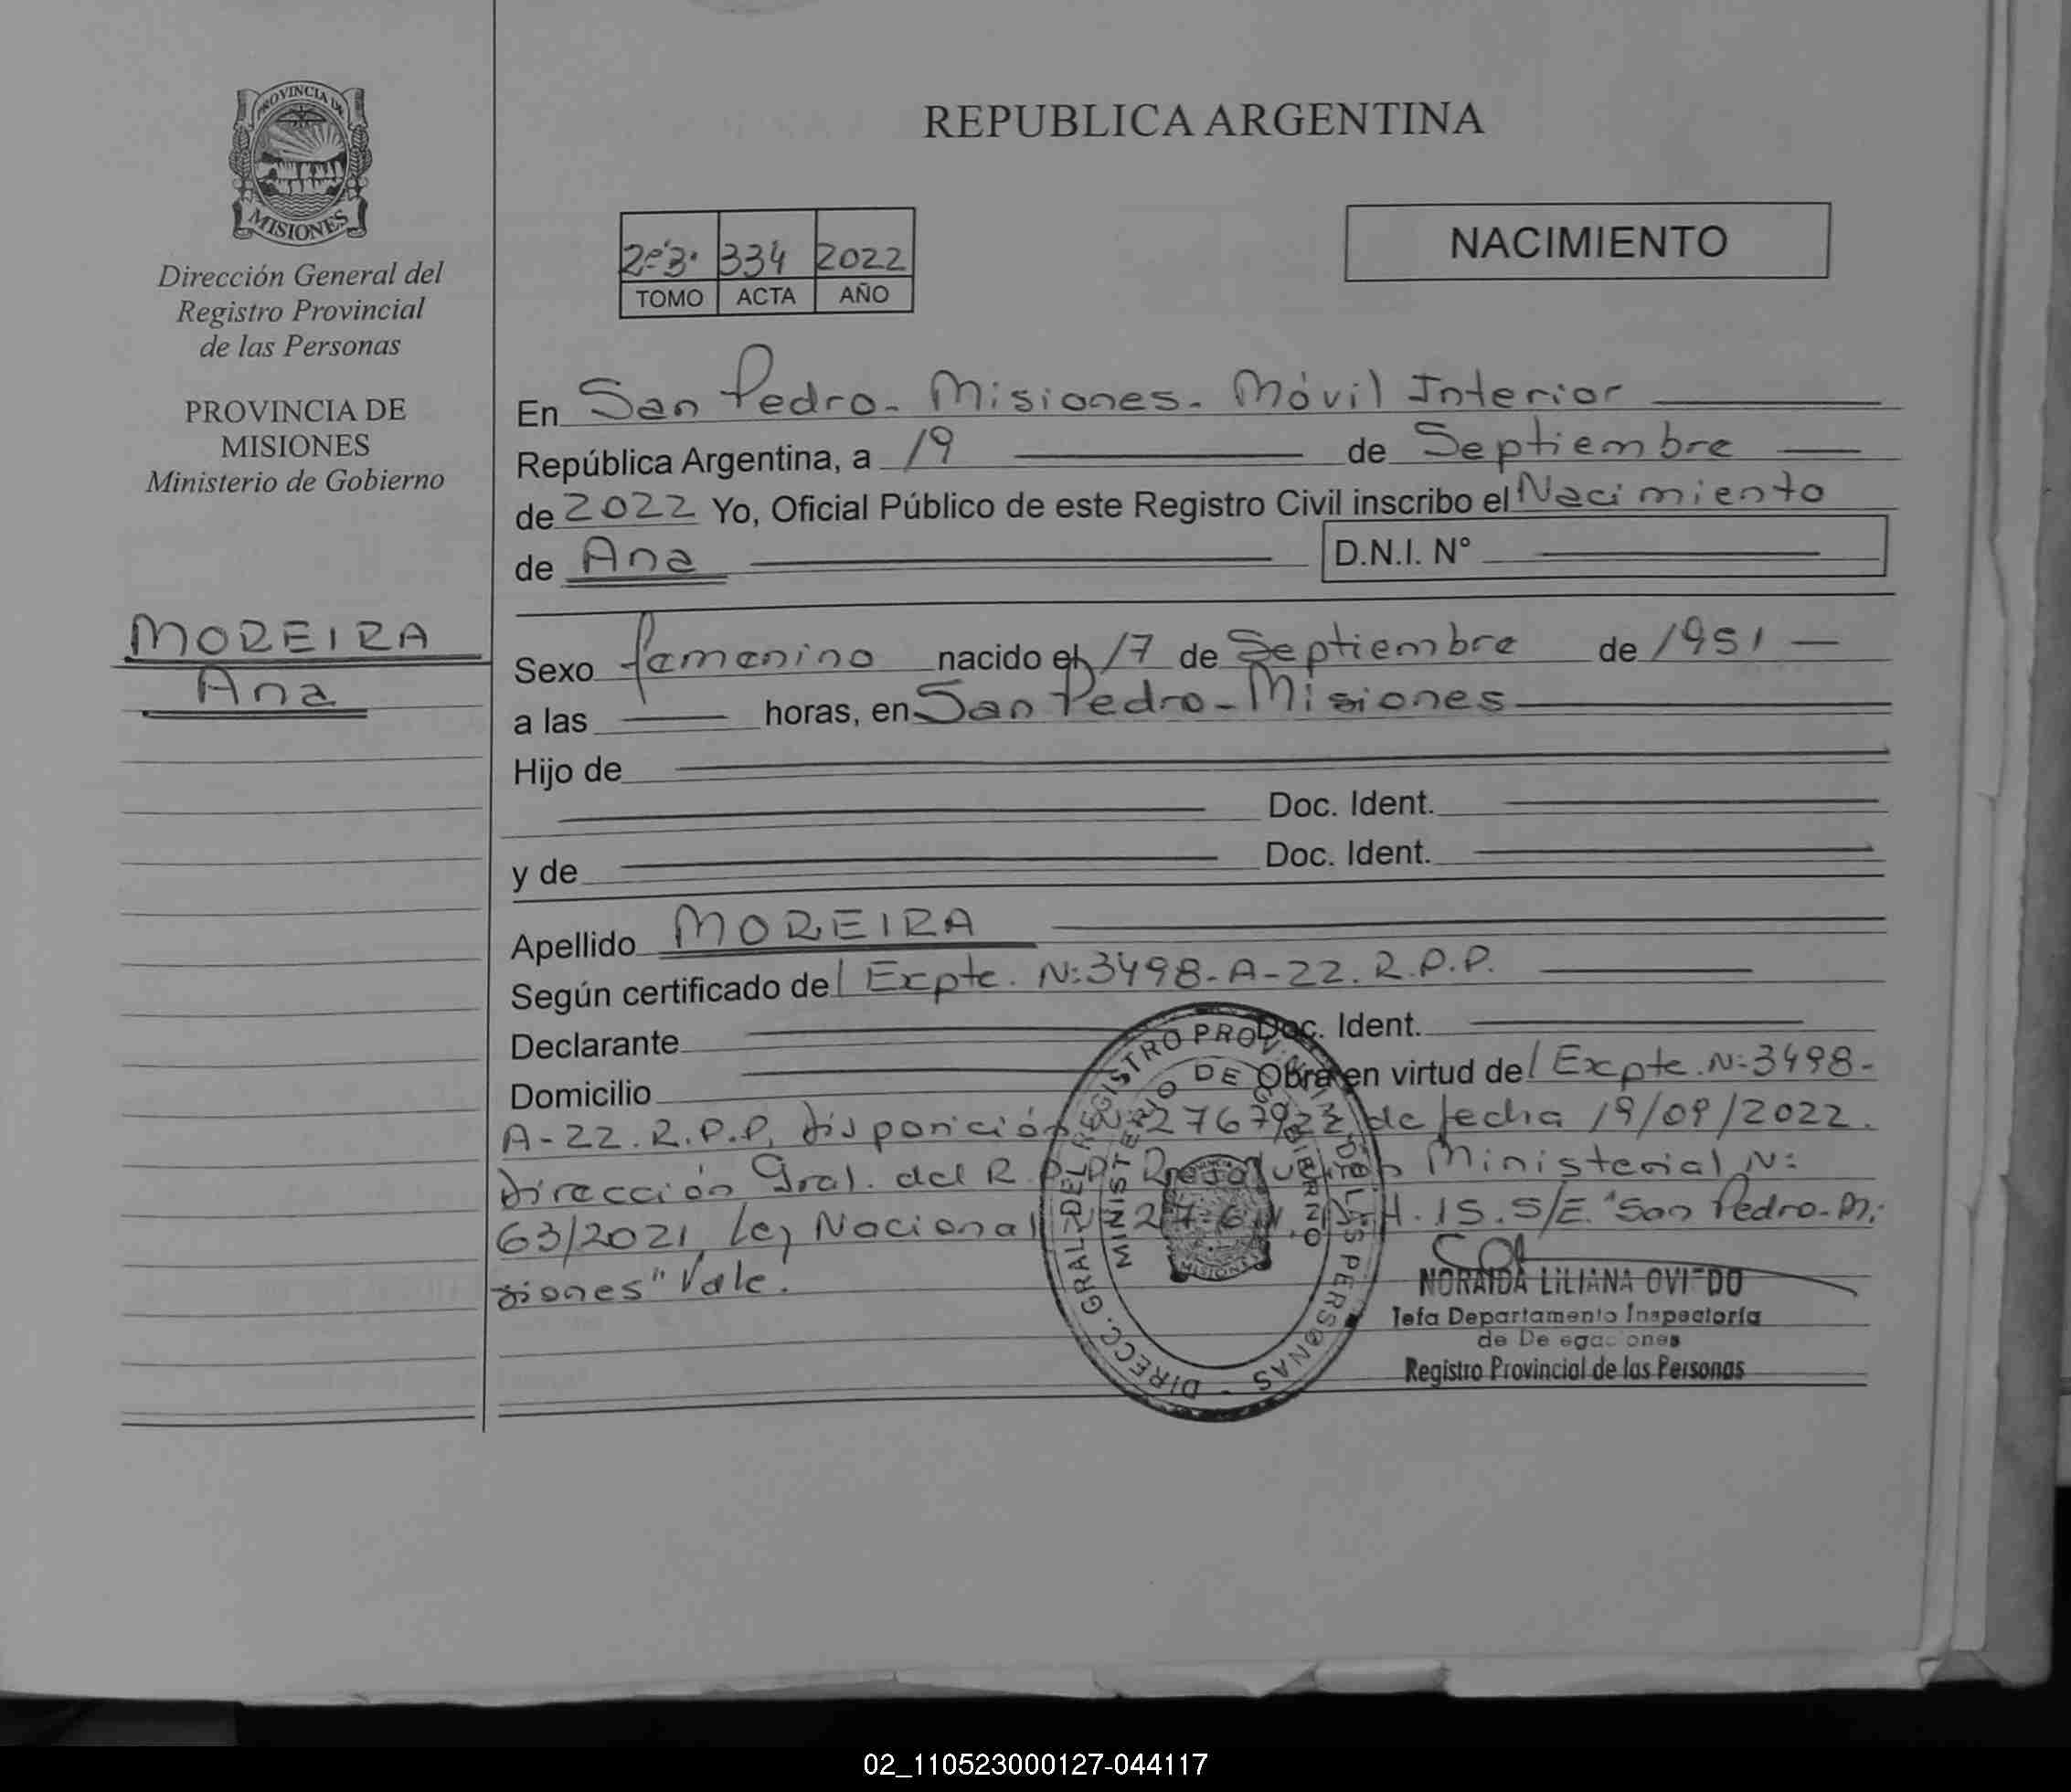 PROVINCIA DE
MISIONES
Dirección General del
Registro Provincial
de las Personas
PROVINCIA DE
MISIONES
Ministerio de Gobierno
MOREIRA
Ana
REPUBLICA ARGENTINA
2º3. 334 2022
TOMO ACTA AÑO
NACIMIENTO
En San Pedro - Misiones - Móvil Interior
República Argentina, a 19 de Septiembre
de 2022 Yo, Oficial Público de este Registro Civil inscribo el Nacimiento
de Ana D.N.I. N°
Sexo femenino nacido el 17 de Septiembre de 1951
a las horas, en San Pedro - Misiones
Hijo de
Doc. Ident.
y de Doc. Ident.
Apellido MOREIRA
Según certificado del Expte. N: 3498-A-22. R.P.P.
Declarante Doc. Ident.
Domicilio Obra en virtud del Expte. N: 3498-
A-22. R.P.P. disposición de fecha 19/09/2022.
Dirección Gral. del R.P.P. Resolución Ministerial N:
63/2021 Ley Nacional 15. S/E. "San Pedro - Mi-
siones" Vale.
DIRECC. GRAL. DEL REGISTRO PROV. DE LAS PERSONAS
MINISTERIO DE GOBIERNO
MISIONES
NORAIDA LILIANA OVIEDO
Jefa Departamento Inspectoría
de Delegaciones
Registro Provincial de las Personas
02_110523000127-044117